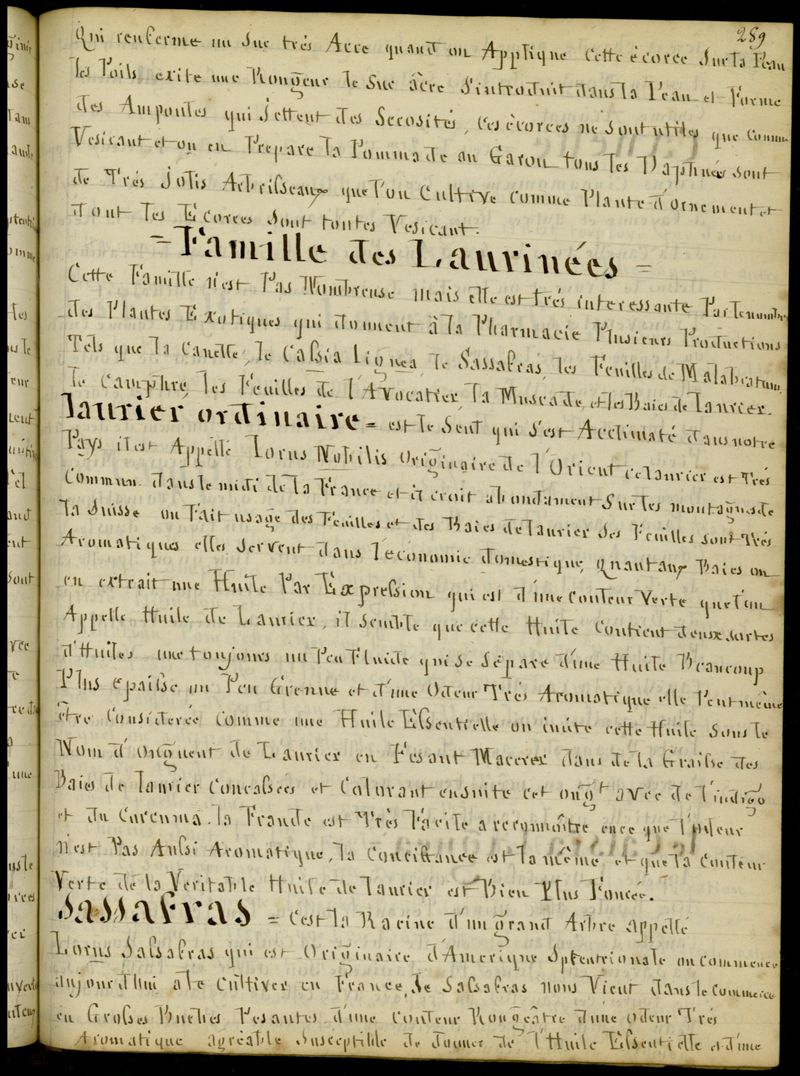 289
Qui renferme un Suc très Acre quand on Applique cette écorce Sur la Peau
les Poils exite une Rougeur le Suc âcre S'introduit dans la Peau et Forme
des Ampoules qui Jettent des Serosités, Ces écorces ne Sont utiles que Comme
Vesicant et on en Prepare la Pommade au Garou tous les Daphnés sont
de Très Jolis Arbrisseaux que l'on Cultive Comme Plante d'ornement et
dont les Ecorces Sont toutes Vesicant.
= Famille des Laurinées =
Cette Famille n'est Pas Nombreuse mais elle est très interessante
des Plantes Exotiques qui donnent à la Pharmacie Plusieurs Productions
Tels que la Canelle, le Cassia Lignea, le Sassafras, les Feuilles de Malabatrum
le Camphre, les Feuilles de l'Avocatier, la Muscade, et les Baies de Laurier.
Laurier ordinaire = est le Seul qui S'est Acclimaté dans notre
Pays il est Appellé Lorus Nobilis originaire de l'Orient ce laurier est très
Commun dans le midi de la France et il croit abondament Sur les montagnes de
la Suisse on Fait usage des Feuilles et des Baies de laurier des Feuilles sont très
Aromatiques elles servent dans l'économie domestique, quant aux Baies on
en extrait une Huile Par Expression qui est d'une Couleur Verte que l'on
Appelle Huile de Laurier, il Semble que cette Huile Contient deux sortes
d'Huiles une toujours un Peu Fluide qui se Sépare d'une Huile Beaucoup
Plus épaisse un Peu Grenue et d'une Odeur très Aromatique elle Peut même
être Considerée Comme une Huile Essentielle on imite cette Huile Sous le
Nom d'onguent de Laurier en Fesant Macerer dans de la Graisse des
Baies de laurier Concassées et Colorant ensuite cet ongt avec de l'indigo
et du Curcuma. la Fraude est Très Facile a reconnoître en ce que l'odeur
n'est Pas Aussi Aromatique, la Consistance est la même et que la Couleur
Verte de la Veritable Huile de laurier est Bien Plus Foncée.
Sassafras = C'est la Racine d'un grand Arbre appellé
Lorus Sassafras qui est Originaire d'Amerique Sptentrionale on commence
aujourd'hui a le Cultiver en France, le Sassafras nous Vient dans le Commerce
en Grosses Buches Pesantes d'une Couleur Rougeâtre d'une odeur Très
Aromatique agréable Susceptible de donner de l'Huile Essentielle et d'une